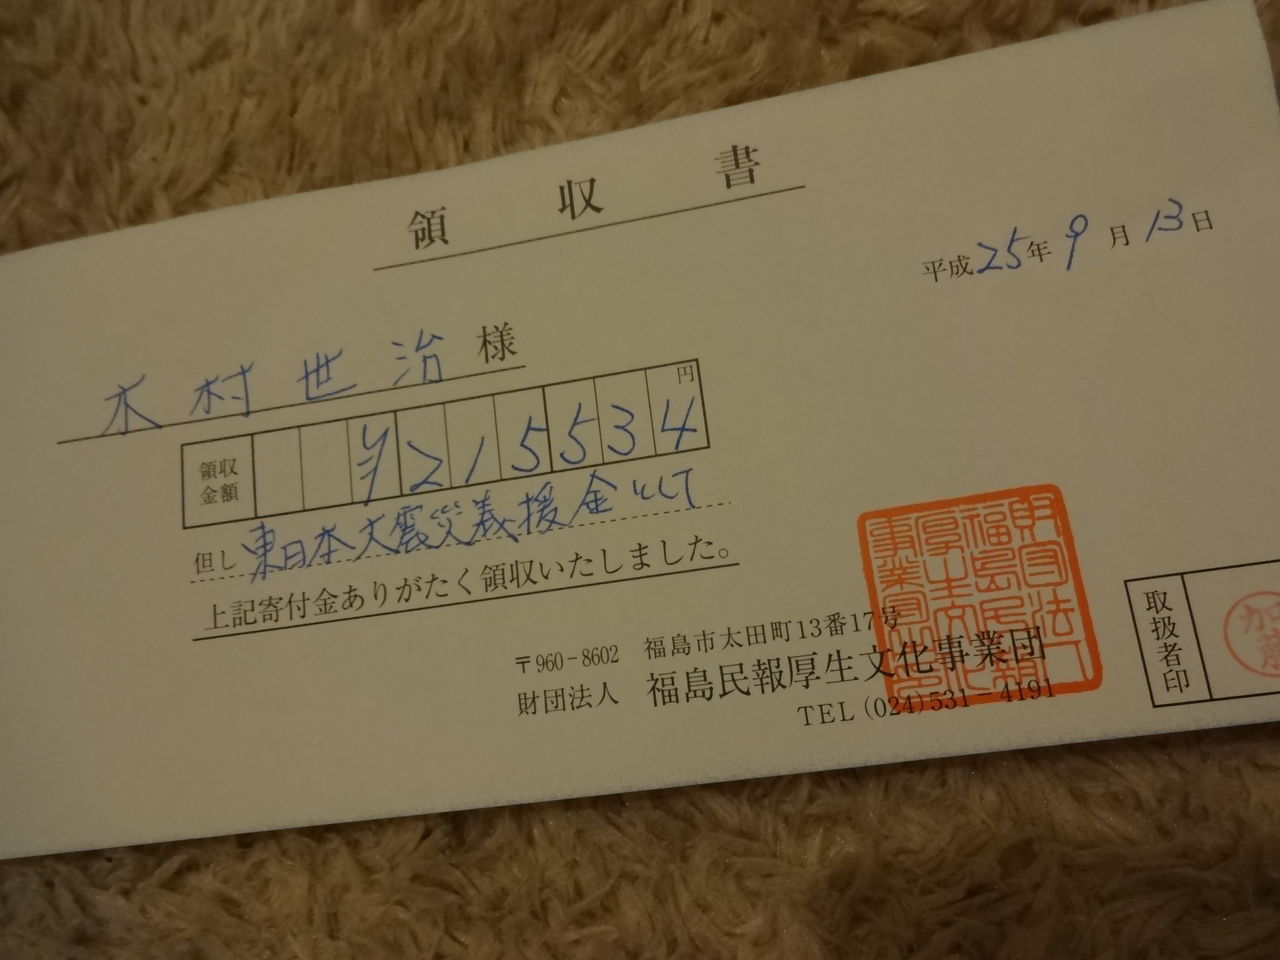 領収書
平成25年9月13日
木村世治様
領収金額 ¥215534円
但し 東日本大震災義援金として
上記寄付金ありがたく領収いたしました。
〒960-8602 福島市太田町13番17号
財団法人 福島民報厚生文化事業団
TEL (024)531-4191
取扱者印
加藤